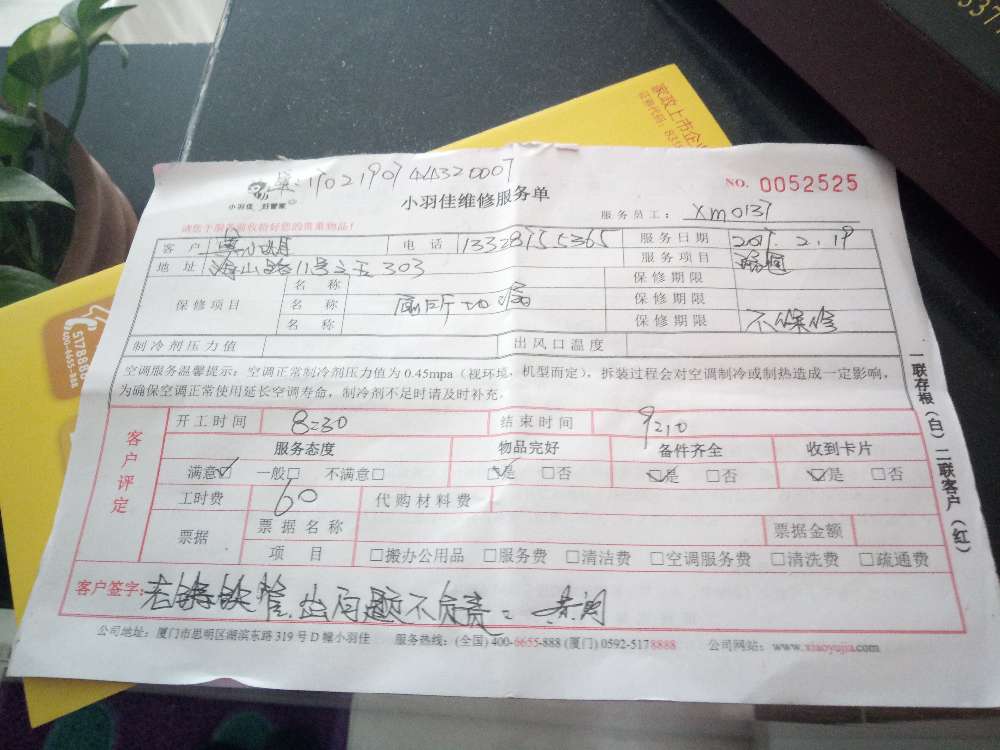 家政上市企业
证券代码：839
单:1902190744320007
NO. 0052525
小羽佳 好管家
小羽佳维修服务单
服务员工： xm0137
请您于服务前收拾好您的贵重物品！
客 户 电 话 13328755365 服务日期 2019.2.19
地 址 海山路11号之五303 服务项目 疏通
名 称 保修期限
保修项目 名 称 厕所地漏 保修期限
名 称 保修期限 不保修
制冷剂压力值 出风口温度
空调服务温馨提示：空调正常制冷剂压力值为 0.45mpa（视环境、机型而定），拆装过程会对空调制冷或制热造成一定影响，
为确保空调正常使用延长空调寿命，制冷剂不足时请及时补充。
客户评定
开工时间 8:30 结束时间 9:10
服务态度 物品完好 备件齐全 收到卡片
满意☑ 一般□ 不满意□ ☑是 □否 ☑是 □否 ☑是 □否
工时费 60 代购材料费
票据 票据名称 票据金额
项 目 □搬办公用品 □服务费 □清洁费 □空调服务费 □清洗费 □疏通费
客户签字： 老铸铁管,出问题不负责：
公司地址：厦门市思明区湖滨东路 319 号 D 幢小羽佳 服务热线：(全国) 400-6655-888 (厦门) 0592-5178888 公司网站：www.xiaoyujia.com
一联存根（白）二联客户（红）
400-6655-888